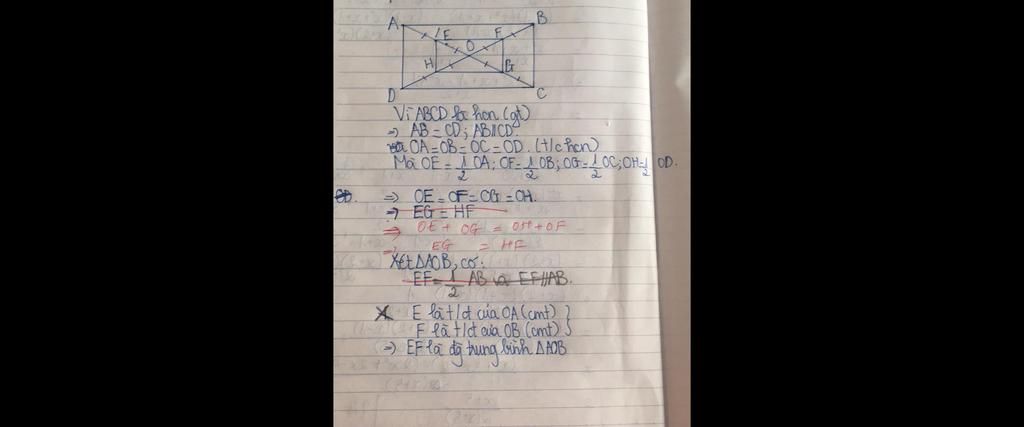 A B
E F
O
H G
D C
Vì ABCD là hcn (gt)
=> AB = CD; AB//CD.
và OA = OB = OC = OD. (t/c hcn)
Mà OE = 1/2 OA; OF = 1/2 OB; OG = 1/2 OC; OH = 1/2 OD.
=> OE = OF = OG = OH.
=> EG = HF
=> OE + OG = OH + OF
=> EG = HF
Xét ΔAOB, có:
EF = 1/2 AB và EF//AB.
E là t/đ của OA (cmt) }
F là t/đ của OB (cmt) }
=> EF là đg trung bình ΔAOB